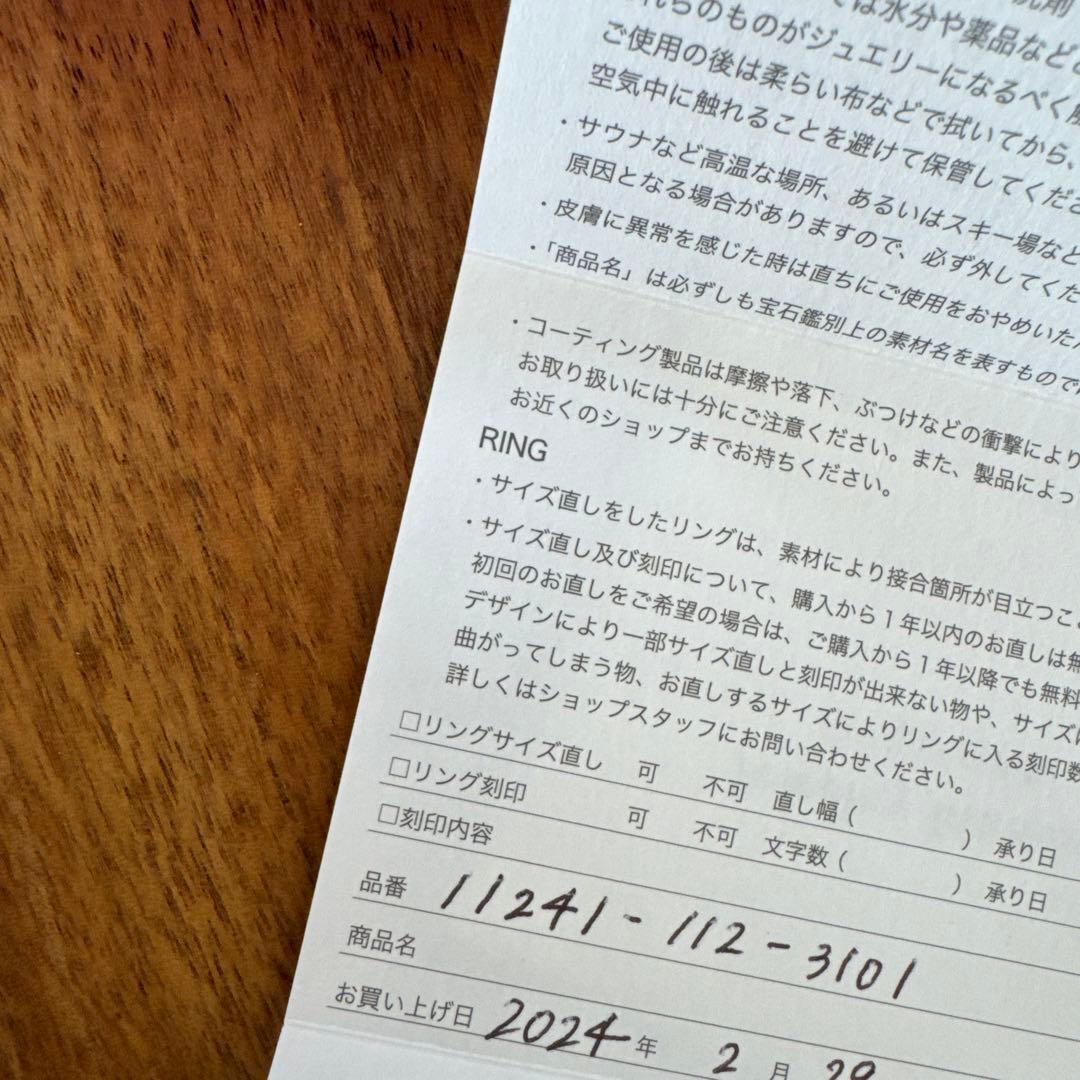 は水分や薬品など
らのものがジュエリーになるべく
ご使用の後は柔らい布などで拭いてから、
空気中に触れることを避けて保管してくださ
・サウナなど高温な場所、あるいはスキー場など
原因となる場合がありますので、必ず外してくだ
・皮膚に異常を感じた時は直ちにご使用をおやめいた
・「商品名」は必ずしも宝石鑑別上の素材名を表すもので
・コーティング製品は摩擦や落下、ぶつけなどの衝撃により
お取り扱いには十分にご注意ください。また、製品によっ
お近くのショップまでお持ちください。
RING
・サイズ直しをしたリングは、素材により接合箇所が目立つこ
・サイズ直し及び刻印について、購入から1年以内のお直しは無
初回のお直しをご希望の場合は、ご購入から1年以降でも無料
デザインにより一部サイズ直しと刻印が出来ない物や、サイズ
曲がってしまう物、お直しするサイズによりリングに入る刻印数
詳しくはショップスタッフにお問い合わせください。
□リングサイズ直し 可 不可 直し幅( ) 承り日
□リング刻印 可 不可 文字数( ) 承り日
□刻印内容
品番 11241-112-3101
商品名
お買い上げ日 2024年 2月